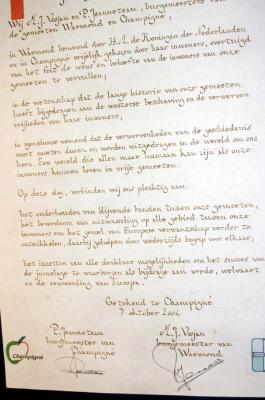 Wij A.J. Vosjan en P. Jeanneteau, burgemeesters van
de gemeenten Warmond en Champigné,
in Warmond benoemd door H.M. de Koningin der Nederlanden
en in Champigné vrijelijk gekozen door haar inwoners, overtuigd
van het feit de wens en behoefte van de inwoners van onze
gemeenten te vervullen;
in de wetenschap dat de lange historie van onze gemeenten
heeft bijgedragen aan de westerse beschaving en de verworven
vrijheden van haar inwoners;
in ogenschouw nemend dat de verworvenheden van de geschiedenis
voort moeten duren en worden uitgedragen in de wereld om ons
heen. Een wereld die alleen maar humaan kan zijn als onze
inwoners kunnen leven in vrije gemeenten.
Op deze dag, verbinden wij ons plechtig aan:
het onderhouden van blijvende banden tussen onze gemeenten,
het bevorderen van uitwisseling op elk gebied tussen onze
inwoners om het gevoel van Europese verwantschap verder te
ontwikkelen, daarbij geholpen door wederzijds begrip voor elkaar;
het inzetten van alle denkbare mogelijkheden om het succes van
de jumelage te waarborgen als bijdrage aan vrede, welvaart
en de eenwording van Europa.
Getekend te Champigné
9 oktober 2004
P. Jeanneteau
burgemeester van
Champigné
A.J. Vosjan
burgemeester van
Warmond
Champigné